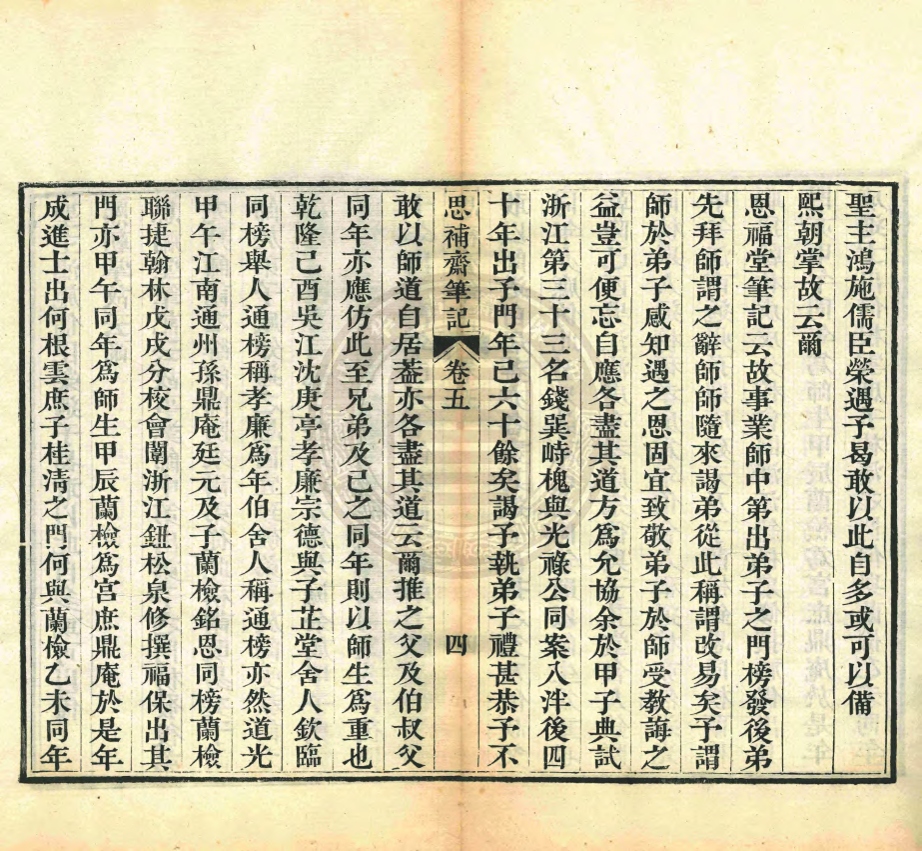 聖主鴻施儒臣榮遇予曷敢以此自多或可以備
熙朝掌故云爾
恩福堂筆記云故事業師中第出弟子之門榜發後弟
先拜師謂之辭師師隨來謁弟從此稱謂改易矣予謂
師於弟子感知遇之恩固宜致敬弟子於師受教誨之
益豈可便忘自應各盡其道方爲允協余於甲子典試
浙江第三十三名錢巽峙槐與光祿公同案入泮後四
十年出予門年已六十餘矣謁予執弟子禮甚恭予不
思補齋筆記 卷五 四
敢以師道自居葢亦各盡其道云爾推之父及伯叔父
同年亦應仿此至兄弟及己之同年則以師生爲重也
乾隆己酉吳江沈庚亭孝廉宗德與子芷堂舍人欽臨
同榜舉人通榜稱孝廉爲年伯舍人稱通榜亦然道光
甲午江南通州孫鼎庵廷元及子蘭檢銘恩同榜蘭檢
聯捷翰林戊戌分校會闈浙江鈕松泉修撰福保出其
門亦甲午同年爲師生甲辰蘭檢爲宮庶鼎庵於是年
成進士出何根雲庶子桂清之門何與蘭檢乙未同年